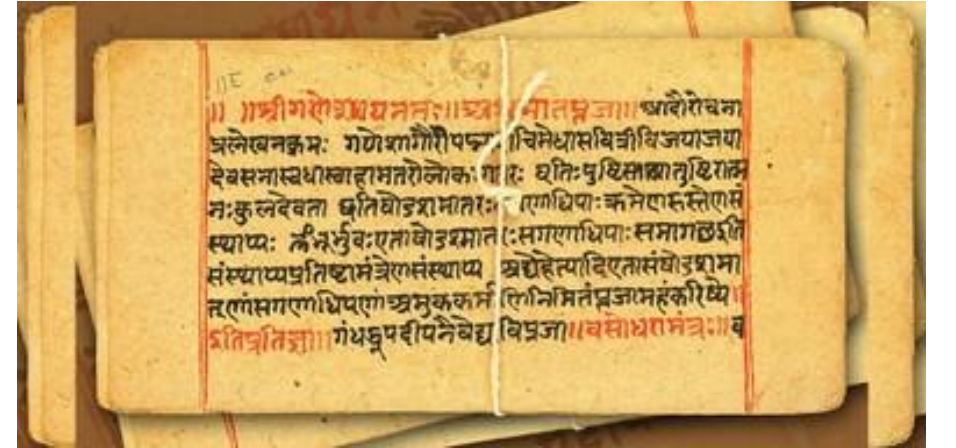 ॥ ॥श्रीगणेशायनमः॥अथमातृपूजा॥ आदौरोचना
प्रलेखनक्रमः गणेशगौरीपद्मा चिमेधासवित्रीविजयाजया
देवसेनास्वधास्वाहामातरोलोकमातरः धृतिःपुष्टिस्तथातुष्टिरात्म
नःकुलदेवता षोडशमातरः गणाधिपाः क्रमेण
स्थाप्यः भूर्भुवः षोडशमातरः सगणाधिपाः
संस्थाप्यप्रतिष्टामंत्रेणसंस्थाप्य अद्येहेत्यादिएतासंषोडशमा
तृणांसगणाधिपाणांअमुककर्म निमितंपूजामहंकरिष्ये॥
इतिप्रतिज्ञा॥ गंधधूपदीपनैवेद्य विपूजा॥वसोधरामंत्रः॥ व